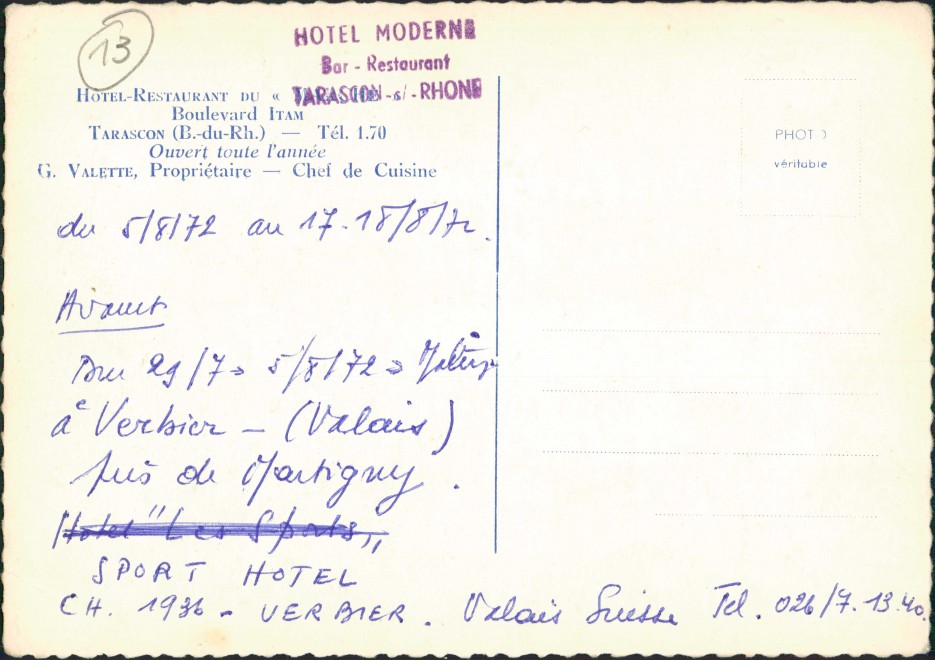 13
HOTEL MODERNE
Bar - Restaurant
TARASCON -s/- RHONE
HOTEL-RESTAURANT DU «
Boulevard ITAM
TARASCON (B.-du-Rh.) — Tél. 1.70
Ouvert toute l'année
G. VALETTE, Propriétaire — Chef de Cuisine
PHOTO
véritable
du 5/8/72 au 17.18/8/72.
Avant
Du 29/7 → 5/8/72 →
à Verbier - (Valais)
près de Martigny.
Hotel "Les Sports„
SPORT HOTEL
CH. 1936 - VERBIER. Valais Suisse Tel. 026/7.13.40.